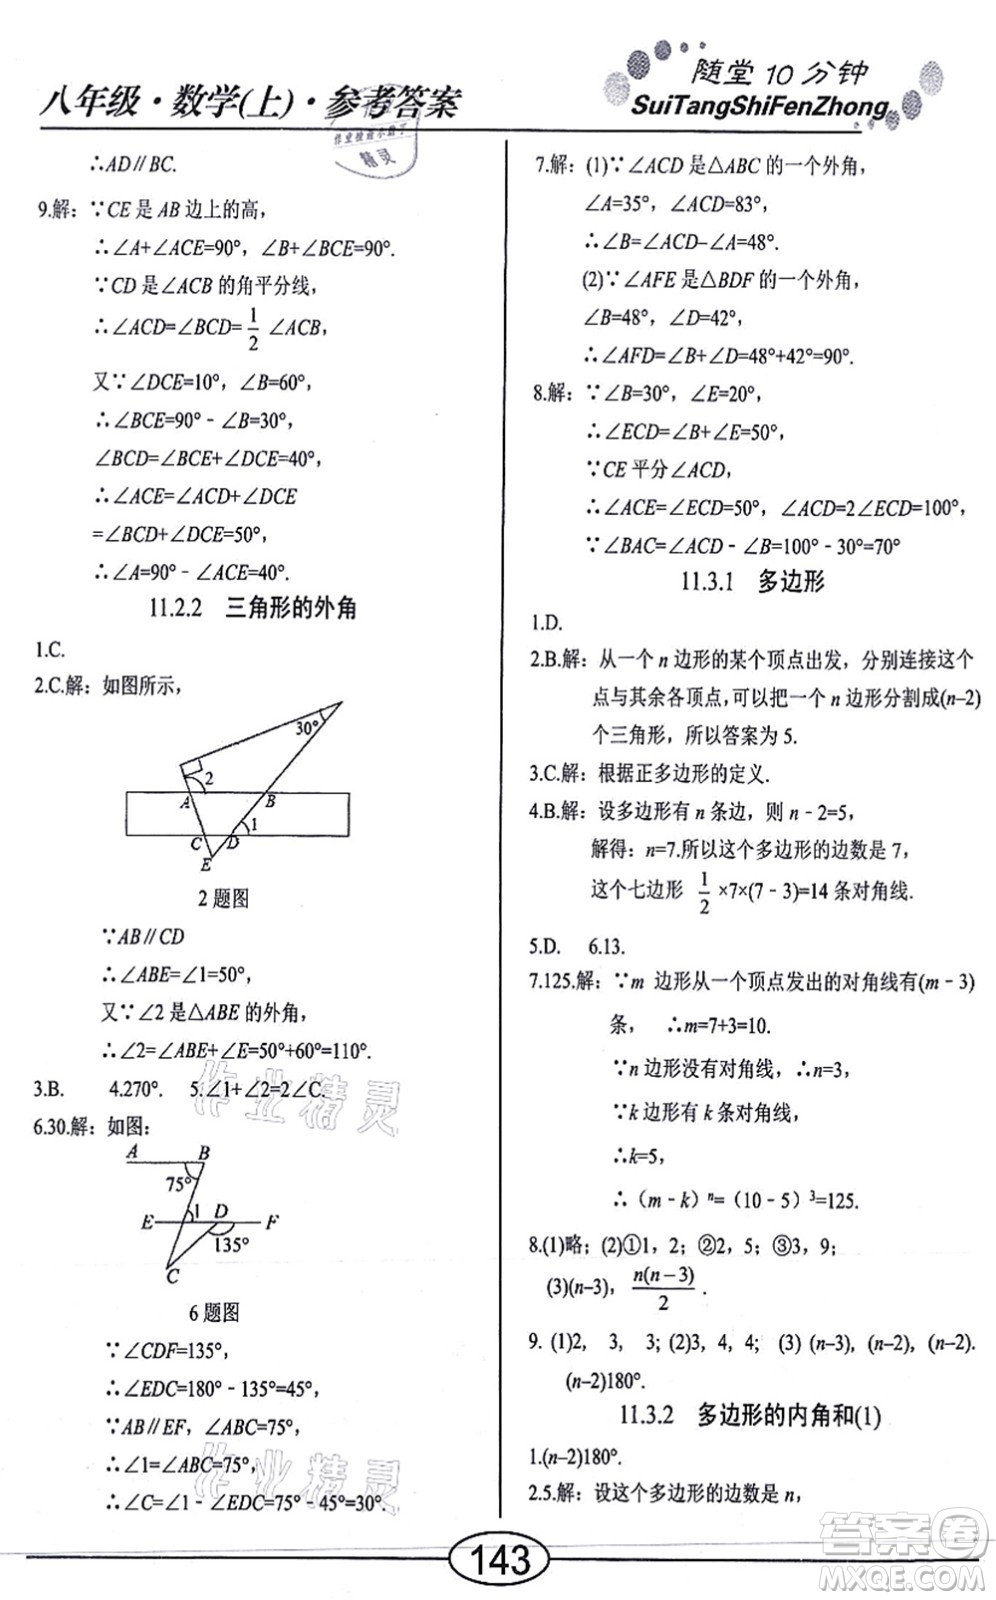 八年级·数学(上)·参考答案
随堂 10 分钟
SuiTangShiFenZhong
∴AD∥BC.
9.解：∵CE 是 AB 边上的高，
∴∠A+∠ACE=90°，∠B+∠BCE=90°.
∵CD 是∠ACB 的角平分线，
∴∠ACD=∠BCD=1/2 ∠ACB，
又∵∠DCE=10°，∠B=60°，
∴∠BCE=90°﹣∠B=30°，
∠BCD=∠BCE+∠DCE=40°，
∴∠ACE=∠ACD+∠DCE
=∠BCD+∠DCE=50°，
∴∠A=90°﹣∠ACE=40°.
11.2.2 三角形的外角
1.C.
2.C.解：如图所示，
30°
2
A B
C D 1
E
2 题图
∵AB∥CD
∴∠ABE=∠1=50°，
又∵∠2 是△ABE 的外角，
∴∠2=∠ABE+∠E=50°+60°=110°.
3.B. 4.270°. 5.∠1+∠2=2∠C.
6.30.解：如图：
A B
75°
E 1 D F
135°
C
6 题图
∵∠CDF=135°，
∴∠EDC=180°﹣135°=45°，
∵AB∥EF，∠ABC=75°，
∴∠1=∠ABC=75°，
∴∠C=∠1﹣∠EDC=75°﹣45°=30°.
7.解：(1)∵∠ACD 是△ABC 的一个外角，
∠A=35°，∠ACD=83°，
∴∠B=∠ACD–∠A=48°.
(2)∵∠AFE 是△BDF 的一个外角，
∠B=48°，∠D=42°，
∴∠AFD=∠B+∠D=48°+42°=90°.
8.解：∵∠B=30°，∠E=20°，
∴∠ECD=∠B+∠E=50°，
∵CE 平分∠ACD，
∴∠ACE=∠ECD=50°，∠ACD=2∠ECD=100°，
∵∠BAC=∠ACD﹣∠B=100°﹣30°=70°
11.3.1 多边形
1.D.
2.B.解：从一个 n 边形的某个顶点出发，分别连接这个
点与其余各顶点，可以把一个 n 边形分割成(n–2)
个三角形，所以答案为 5.
3.C.解：根据正多边形的定义.
4.B.解：设多边形有 n 条边，则 n﹣2=5，
解得：n=7.所以这个多边形的边数是 7，
这个七边形 1/2 ×7×(7﹣3)=14 条对角线.
5.D. 6.13.
7.125.解：∵m 边形从一个顶点发出的对角线有(m﹣3)
条， ∴m=7+3=10.
∵n 边形没有对角线，∴n=3，
∵k 边形有 k 条对角线，
∴k=5，
∴（m﹣k）ⁿ=（10﹣5）³=125.
8.(1)略；(2)①1，2；②2，5；③3，9；
(3)(n–3)，n(n﹣3)/2 .
9. (1)2， 3， 3； (2)3，4，4； (3) (n–3)，(n–2)，(n–2).
(n–2)180°.
11.3.2 多边形的内角和(1)
1.(n–2)180°.
2.5.解：设这个多边形的边数是 n，
143
作业检查小助手
精灵
作业精灵
作业精灵
答案圈
MXQE.COM